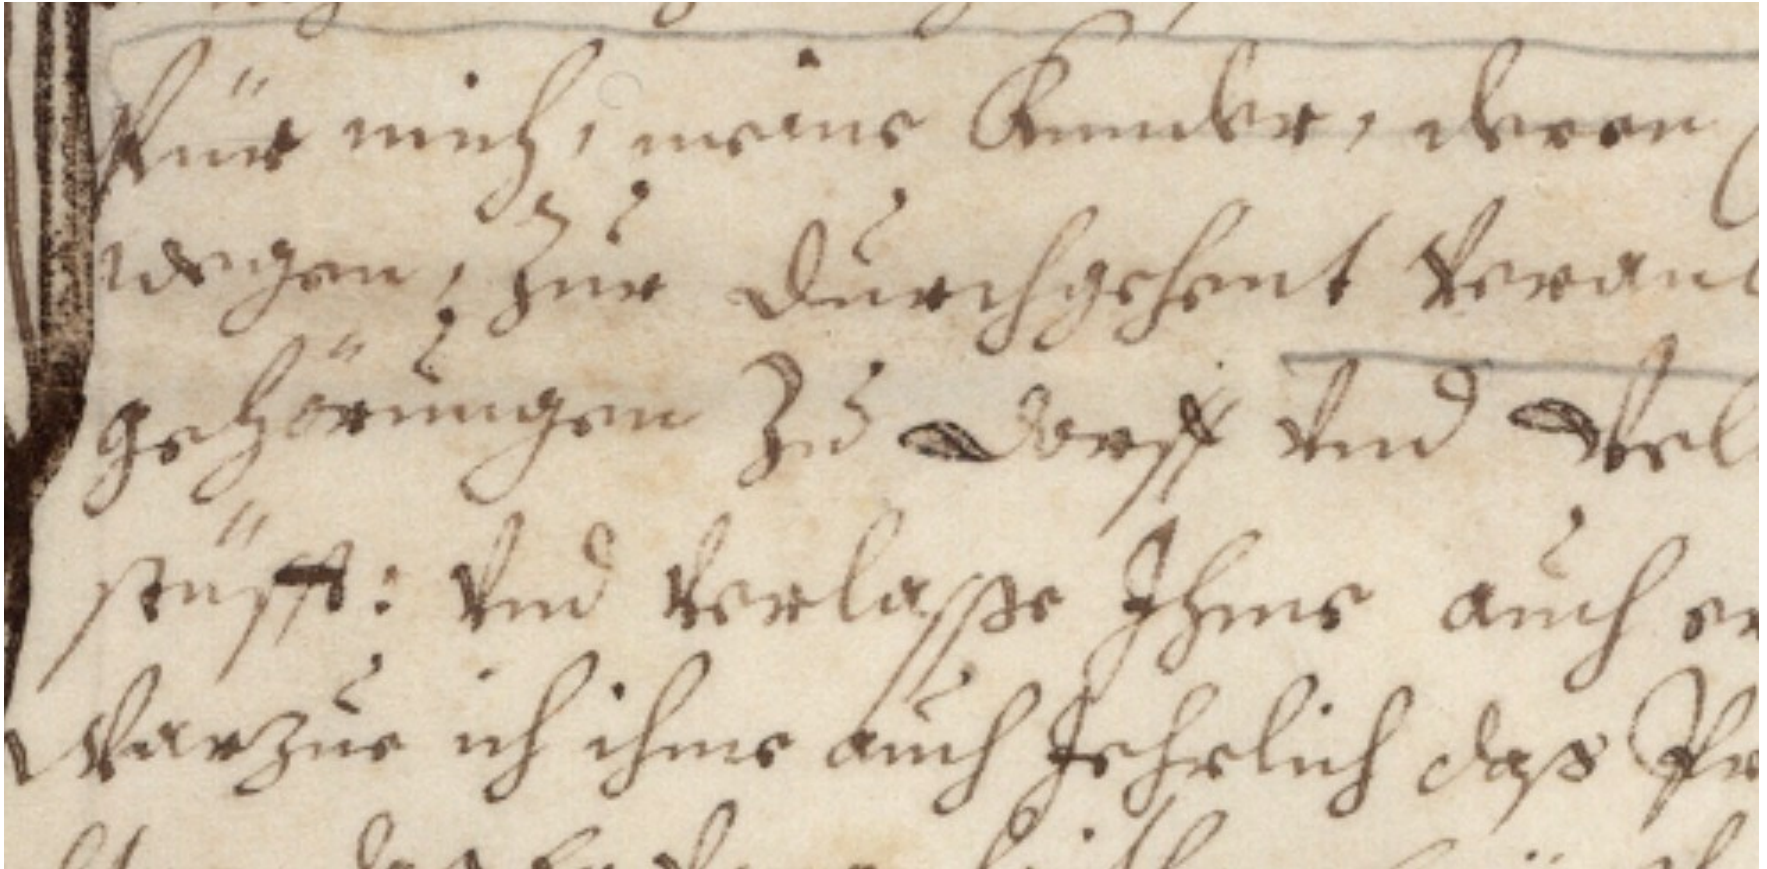 für mich, meine Kinder, deren
wegen, zur durchgehent veran
gehörungen zu dorff vnd vel
stüfft: vnd verlasse Ihme auch er
warzue ich ihme auch Jehrlich daß Pr